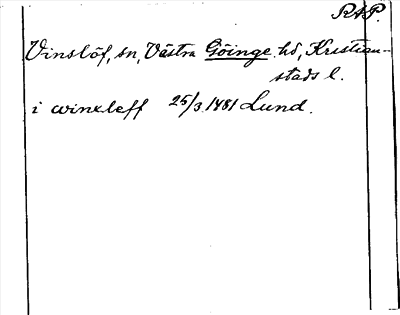 RAP.
Vinslöf, sn, Västra Göinge hd, Kristian-
stads l.
i winxleff 25/3 1481 Lund.